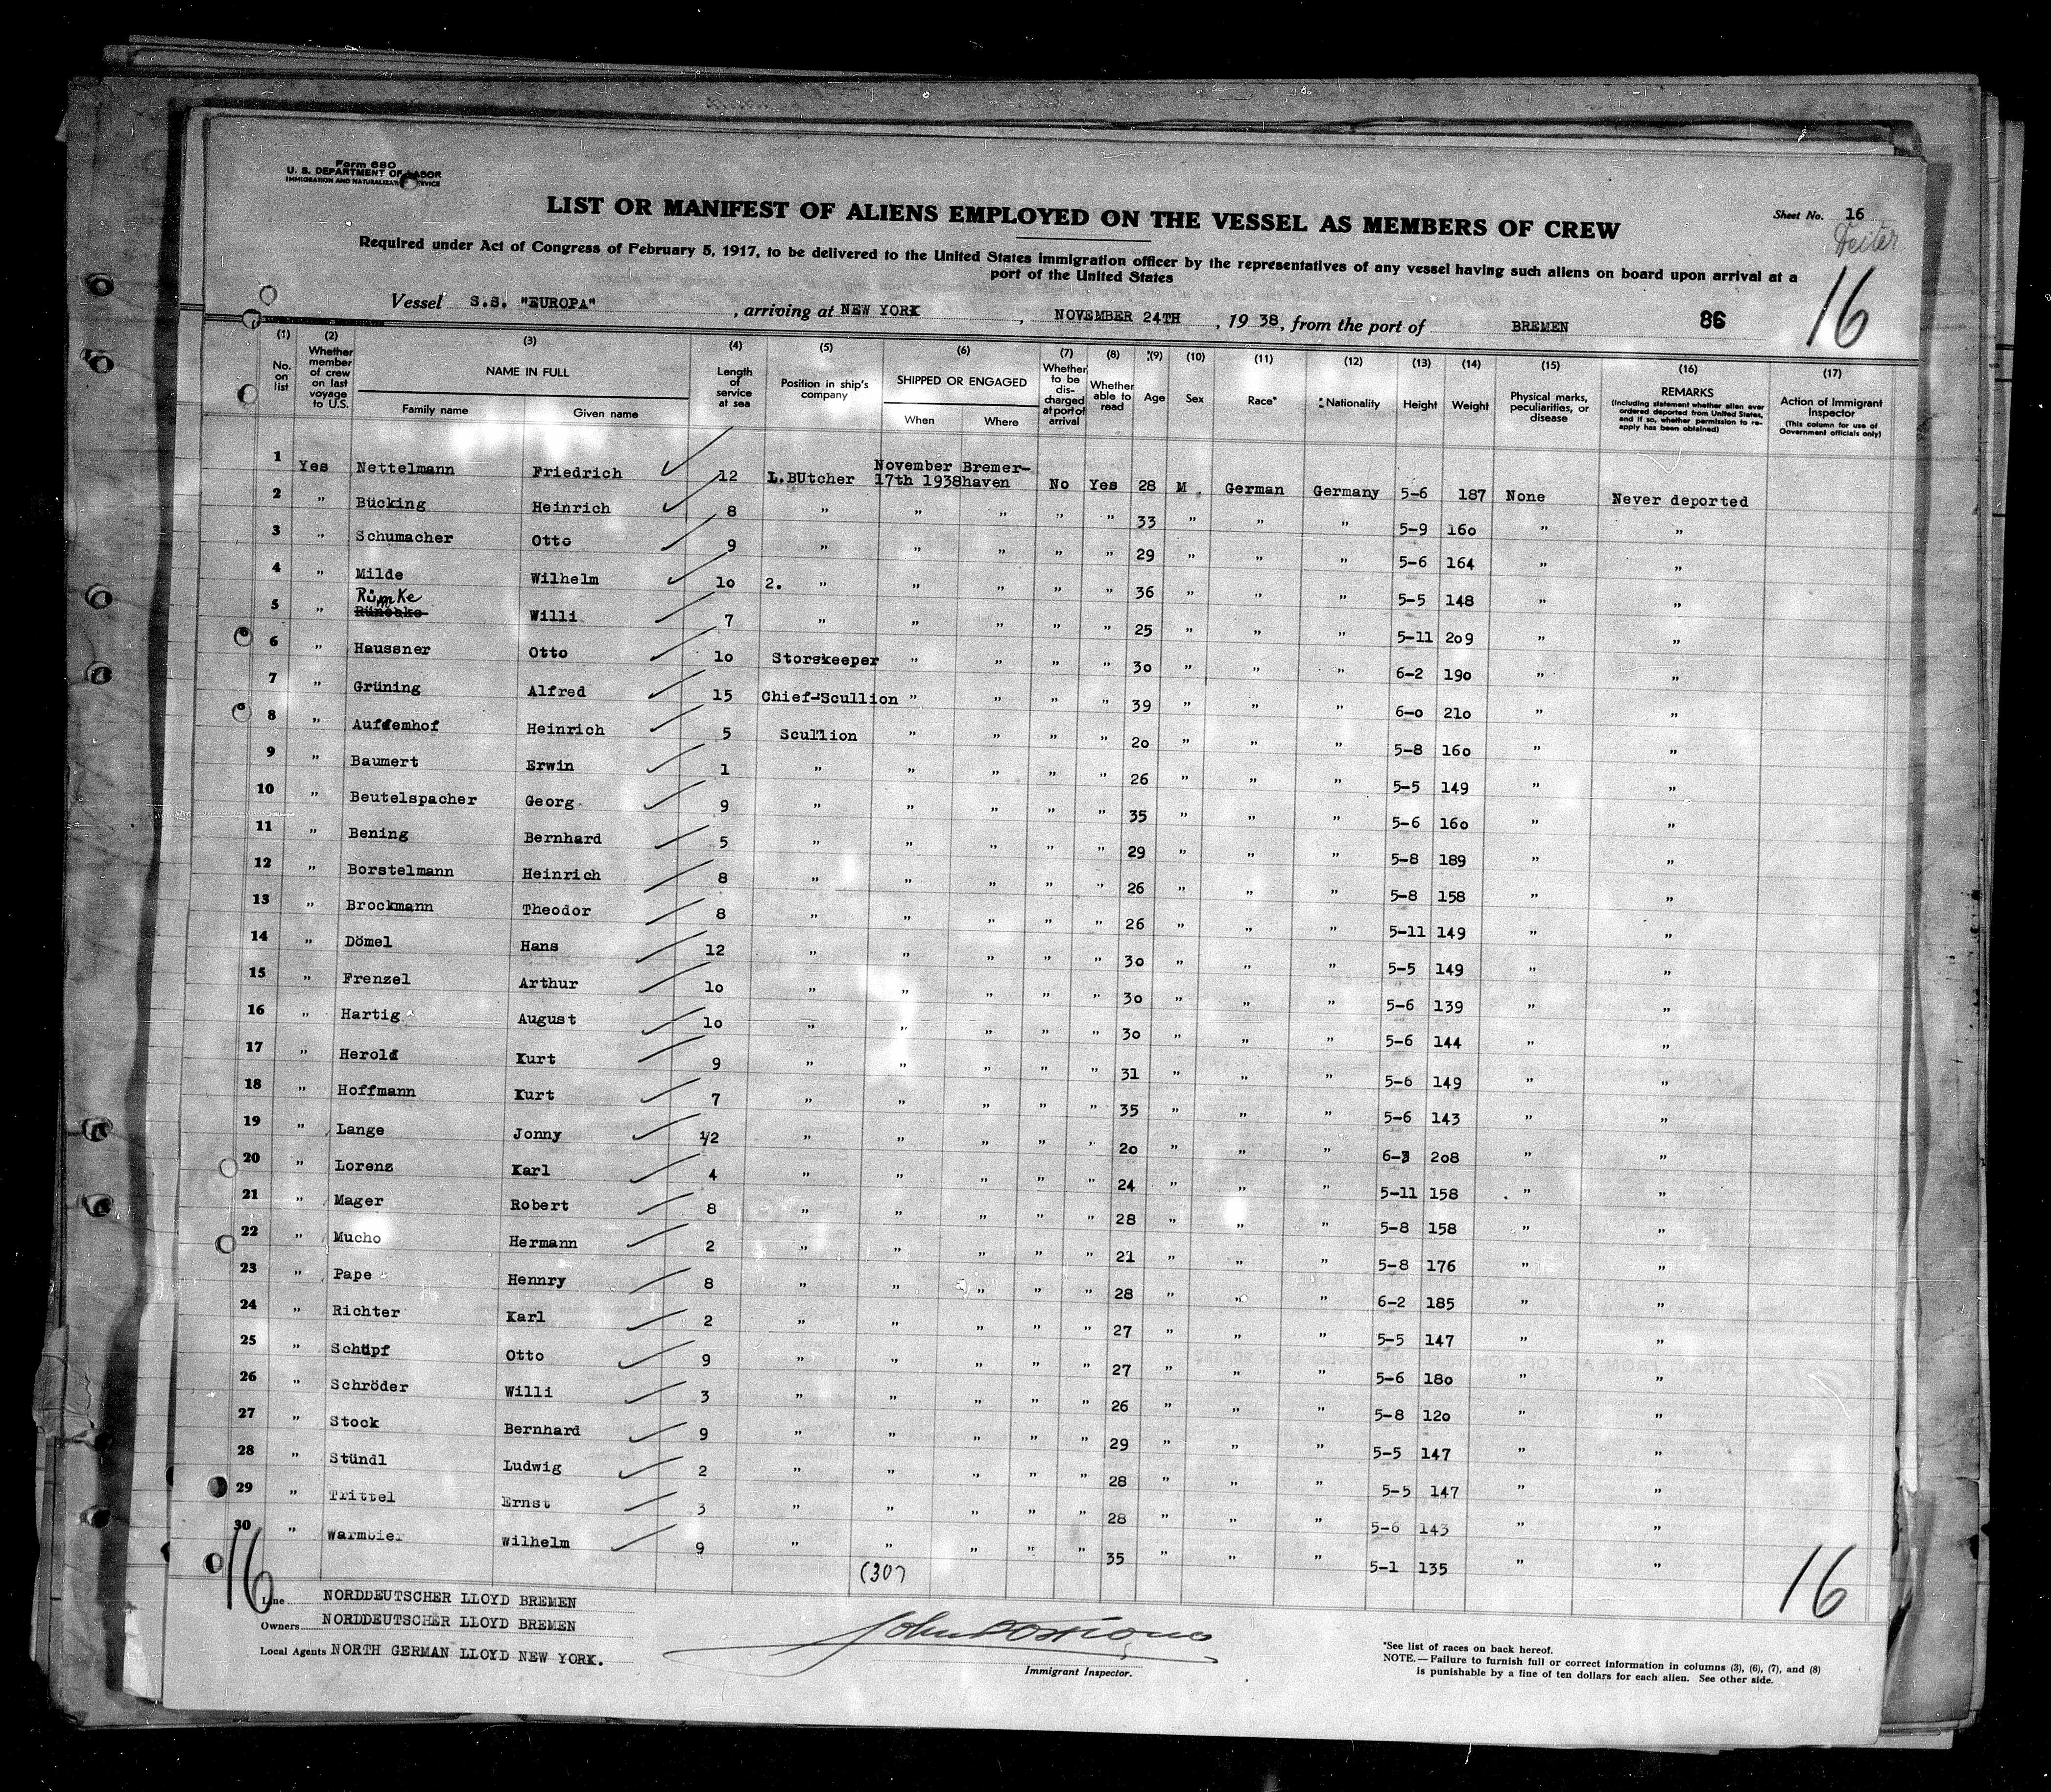 Form 680
U. S. DEPARTMENT OF LABOR
IMMIGRATION AND NATURALIZATION SERVICE
LIST OR MANIFEST OF ALIENS EMPLOYED ON THE VESSEL AS MEMBERS OF CREW
Sheet No. 16
16
Required under Act of Congress of February 5, 1917, to be delivered to the United States immigration officer by the representatives of any vessel having such aliens on board upon arrival at a
port of the United States
Vessel S.S. "EUROPA", arriving at NEW YORK, NOVEMBER 24TH, 19 38, from the port of BREMEN 86
(1) No. on list
(2) Whether member of crew on last voyage to U.S.
(3) NAME IN FULL Family name Given name
(4) Length of service at sea
(5) Position in ship's company
(6) SHIPPED OR ENGAGED When Where
(7) Whether to be discharged at port of arrival
(8) Whether able to read
(9) Age
(10) Sex
(11) Race*
(12) Nationality
(13) Height
(14) Weight
(15) Physical marks, peculiarities, or disease
(16) REMARKS (Including statement whether alien ever ordered deported from United States, and if so, whether permission to re-apply has been obtained)
(17) Action of Immigrant Inspector (This column for use of Government officials only)
1 Yes Nettelmann Friedrich 12 L.BUtcher November 17th 1938 Bremer-haven No Yes 28 M German Germany 5-6 187 None Never deported
2 " Bücking Heinrich 8 " " " " " 33 " " " 5-9 160 " "
3 " Schumacher Otto 9 " " " " " 29 " " " 5-6 164 " "
4 " Milde Wilhelm 10 2. " " " " " 36 " " " 5-5 148 " "
5 " Rümke Willi 7 " " " " " 25 " " " 5-11 209 " "
6 " Haussner Otto 10 Storekeeper " " " " 30 " " " 6-2 190 " "
7 " Grüning Alfred 15 Chief-Scullion " " " " 39 " " " 6-0 210 " "
8 " Auffemhof Heinrich 5 Scullion " " " " 20 " " " 5-8 160 " "
9 " Baumert Erwin 1 " " " " " 26 " " " 5-5 149 " "
10 " Beutelspacher Georg 9 " " " " " 35 " " " 5-6 160 " "
11 " Bening Bernhard 5 " " " " " 29 " " " 5-8 189 " "
12 " Borstelmann Heinrich 8 " " " " " 26 " " " 5-8 158 " "
13 " Brockmann Theodor 8 " " " " " 26 " " " 5-11 149 " "
14 " Dömel Hans 12 " " " " " 30 " " " 5-5 149 " "
15 " Frenzel Arthur 10 " " " " " 30 " " " 5-6 139 " "
16 " Hartig August 10 " " " " " 30 " " " 5-6 144 " "
17 " Herold Kurt 9 " " " " " 31 " " " 5-6 149 " "
18 " Hoffmann Kurt 7 " " " " " 35 " " " 5-6 143 " "
19 " Lange Jonny 1/2 " " " " " 20 " " " 208 " "
20 " Lorenz Karl 4 " " " " " 24 " " " 5-11 158 " "
21 " Mager Robert 8 " " " " " 28 " " " 5-8 158 " "
22 " Mucho Hermann 2 " " " " " 21 " " " 5-8 176 " "
23 " Pape Hennry 8 " " " " " 28 " " " 6-2 185 " "
24 " Richter Karl 2 " " " " " 27 " " " 5-5 147 " "
25 " Schüpf Otto 9 " " " " " 27 " " " 5-6 180 " "
26 " Schröder Willi 3 " " " " " 26 " " " 5-8 120 " "
27 " Stock Bernhard 9 " " " " " 29 " " " 5-5 147 " "
28 " Stündl Ludwig 2 " " " " " 28 " " " 5-5 147 " "
29 " Trittel Ernst 3 " " " " " 28 " " " 5-6 143 " "
30 " Warmbier Wilhelm 9 " " " " " 35 " " " 5-1 135 " "
(30)
16
16
Line NORDDEUTSCHER LLOYD BREMEN
Owners NORDDEUTSCHER LLOYD BREMEN
Local Agents NORTH GERMAN LLOYD NEW YORK.
Immigrant Inspector.
*See list of races on back hereof.
NOTE.—Failure to furnish full or correct information in columns (3), (6), (7), and (8)
is punishable by a fine of ten dollars for each alien. See other side.